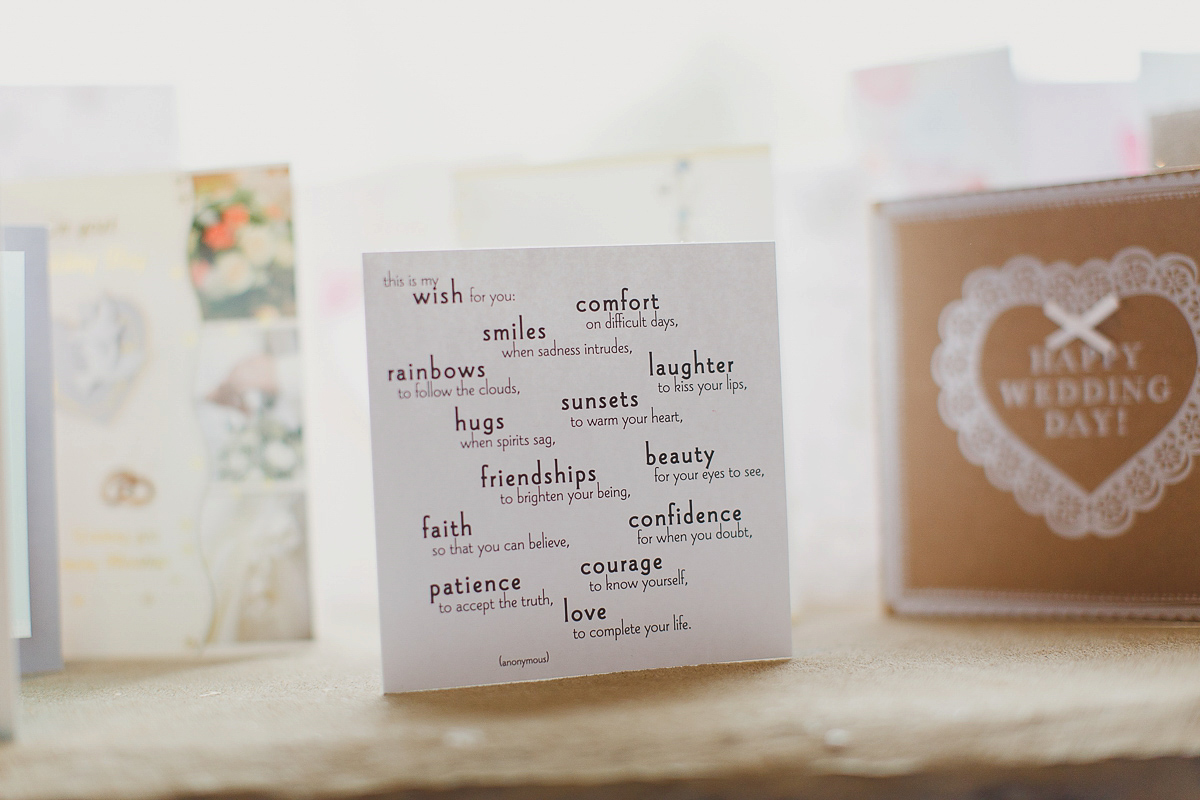 this is my
wish for you:
comfort
on difficult days,
smiles
when sadness intrudes,
rainbows
to follow the clouds,
laughter
to kiss your lips,
sunsets
to warm your heart,
hugs
when spirits sag,
beauty
for your eyes to see,
friendships
to brighten your being,
confidence
for when you doubt,
faith
so that you can believe,
courage
to know yourself,
patience
to accept the truth,
love
to complete your life.
(anonymous)
HAPPY
WEDDING
DAY!